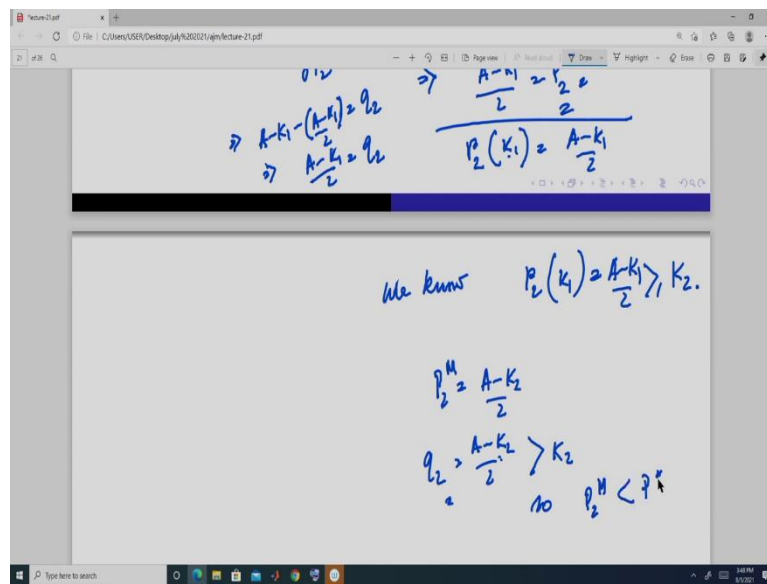 *lecture-21.pdf
File | C:/Users/USER/Desktop/july%202021/ajm/lecture-21.pdf
21 of 26 Page view Read aloud Draw Highlight Erase
⇒ A-K₁-(A-K₁)/2 = q₂ ⇒ (A-K₁)/2 = P₂ =
⇒ (A-K₁)/2 = q₂ P₂(K₁) = (A-K₁)/2
We know P₂(K₁) = (A-K₁)/2 ⩾ K₂.
P₂ᴹ = (A-K₂)/2
q₂ = (A-K₂)/2 > K₂
so P₂ᴹ < P*
Type here to search
3:48 PM
8/1/2021